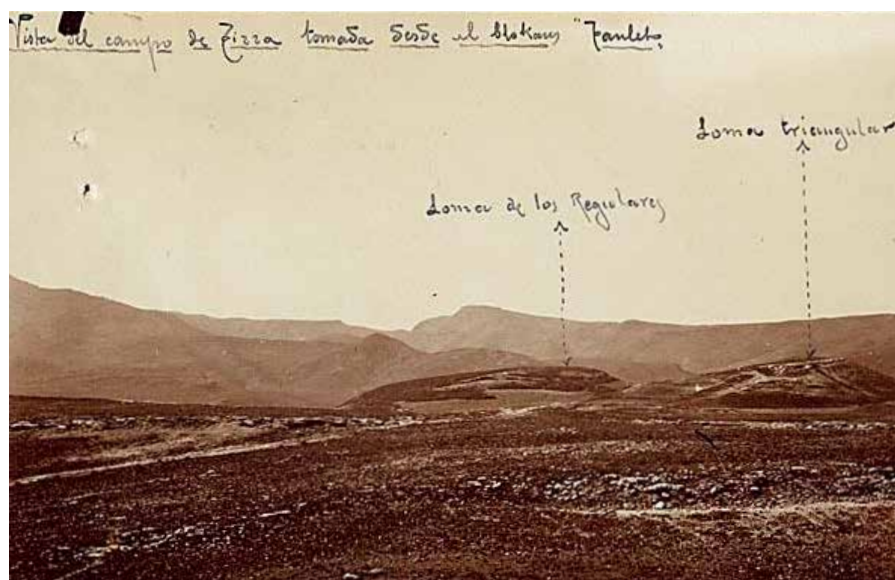 Vista del campo de Zizza tomada desde el blokaus "Zanleto"
Loma triangular
Loma de los Regulares